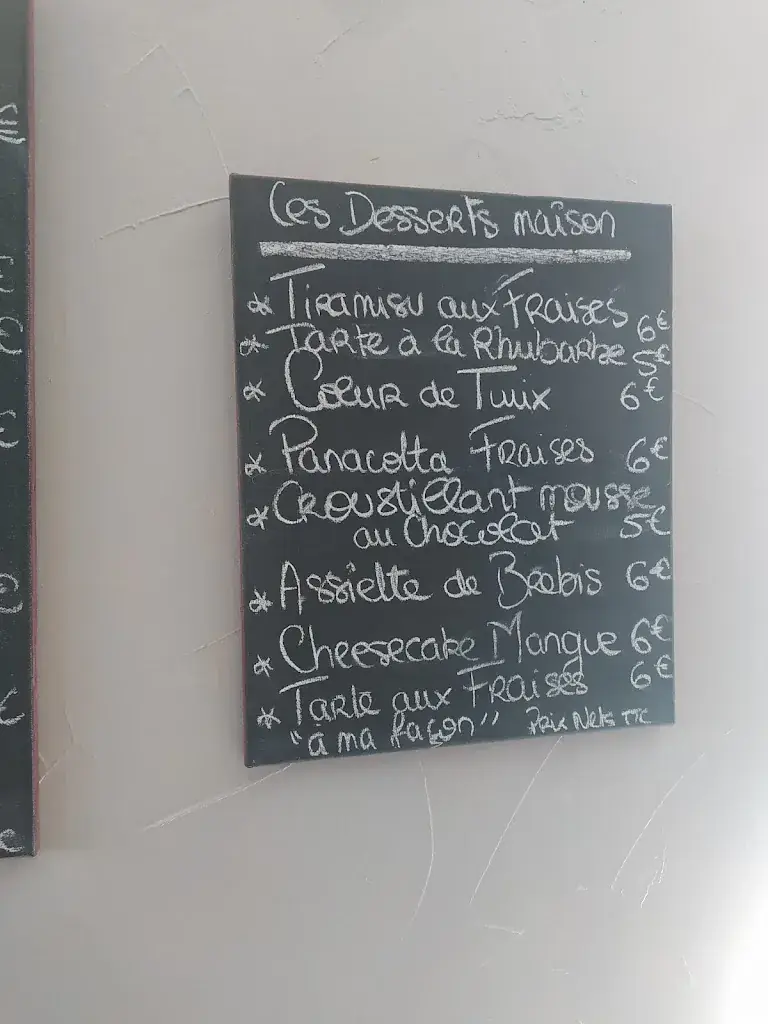 Les Desserts maison
* Tiramisu aux Fraises 6€
* Tarte à la Rhubarbe 5€
* Coeur de Twix 6€
* Panacotta Fraises 6€
* Croustillant mousse
au Chocolat 5€
* Assiette de Brebis 6€
* Cheesecake Mangue 6€
* Tarte aux Fraises 6€
"à ma façon" Prix Nets TTC